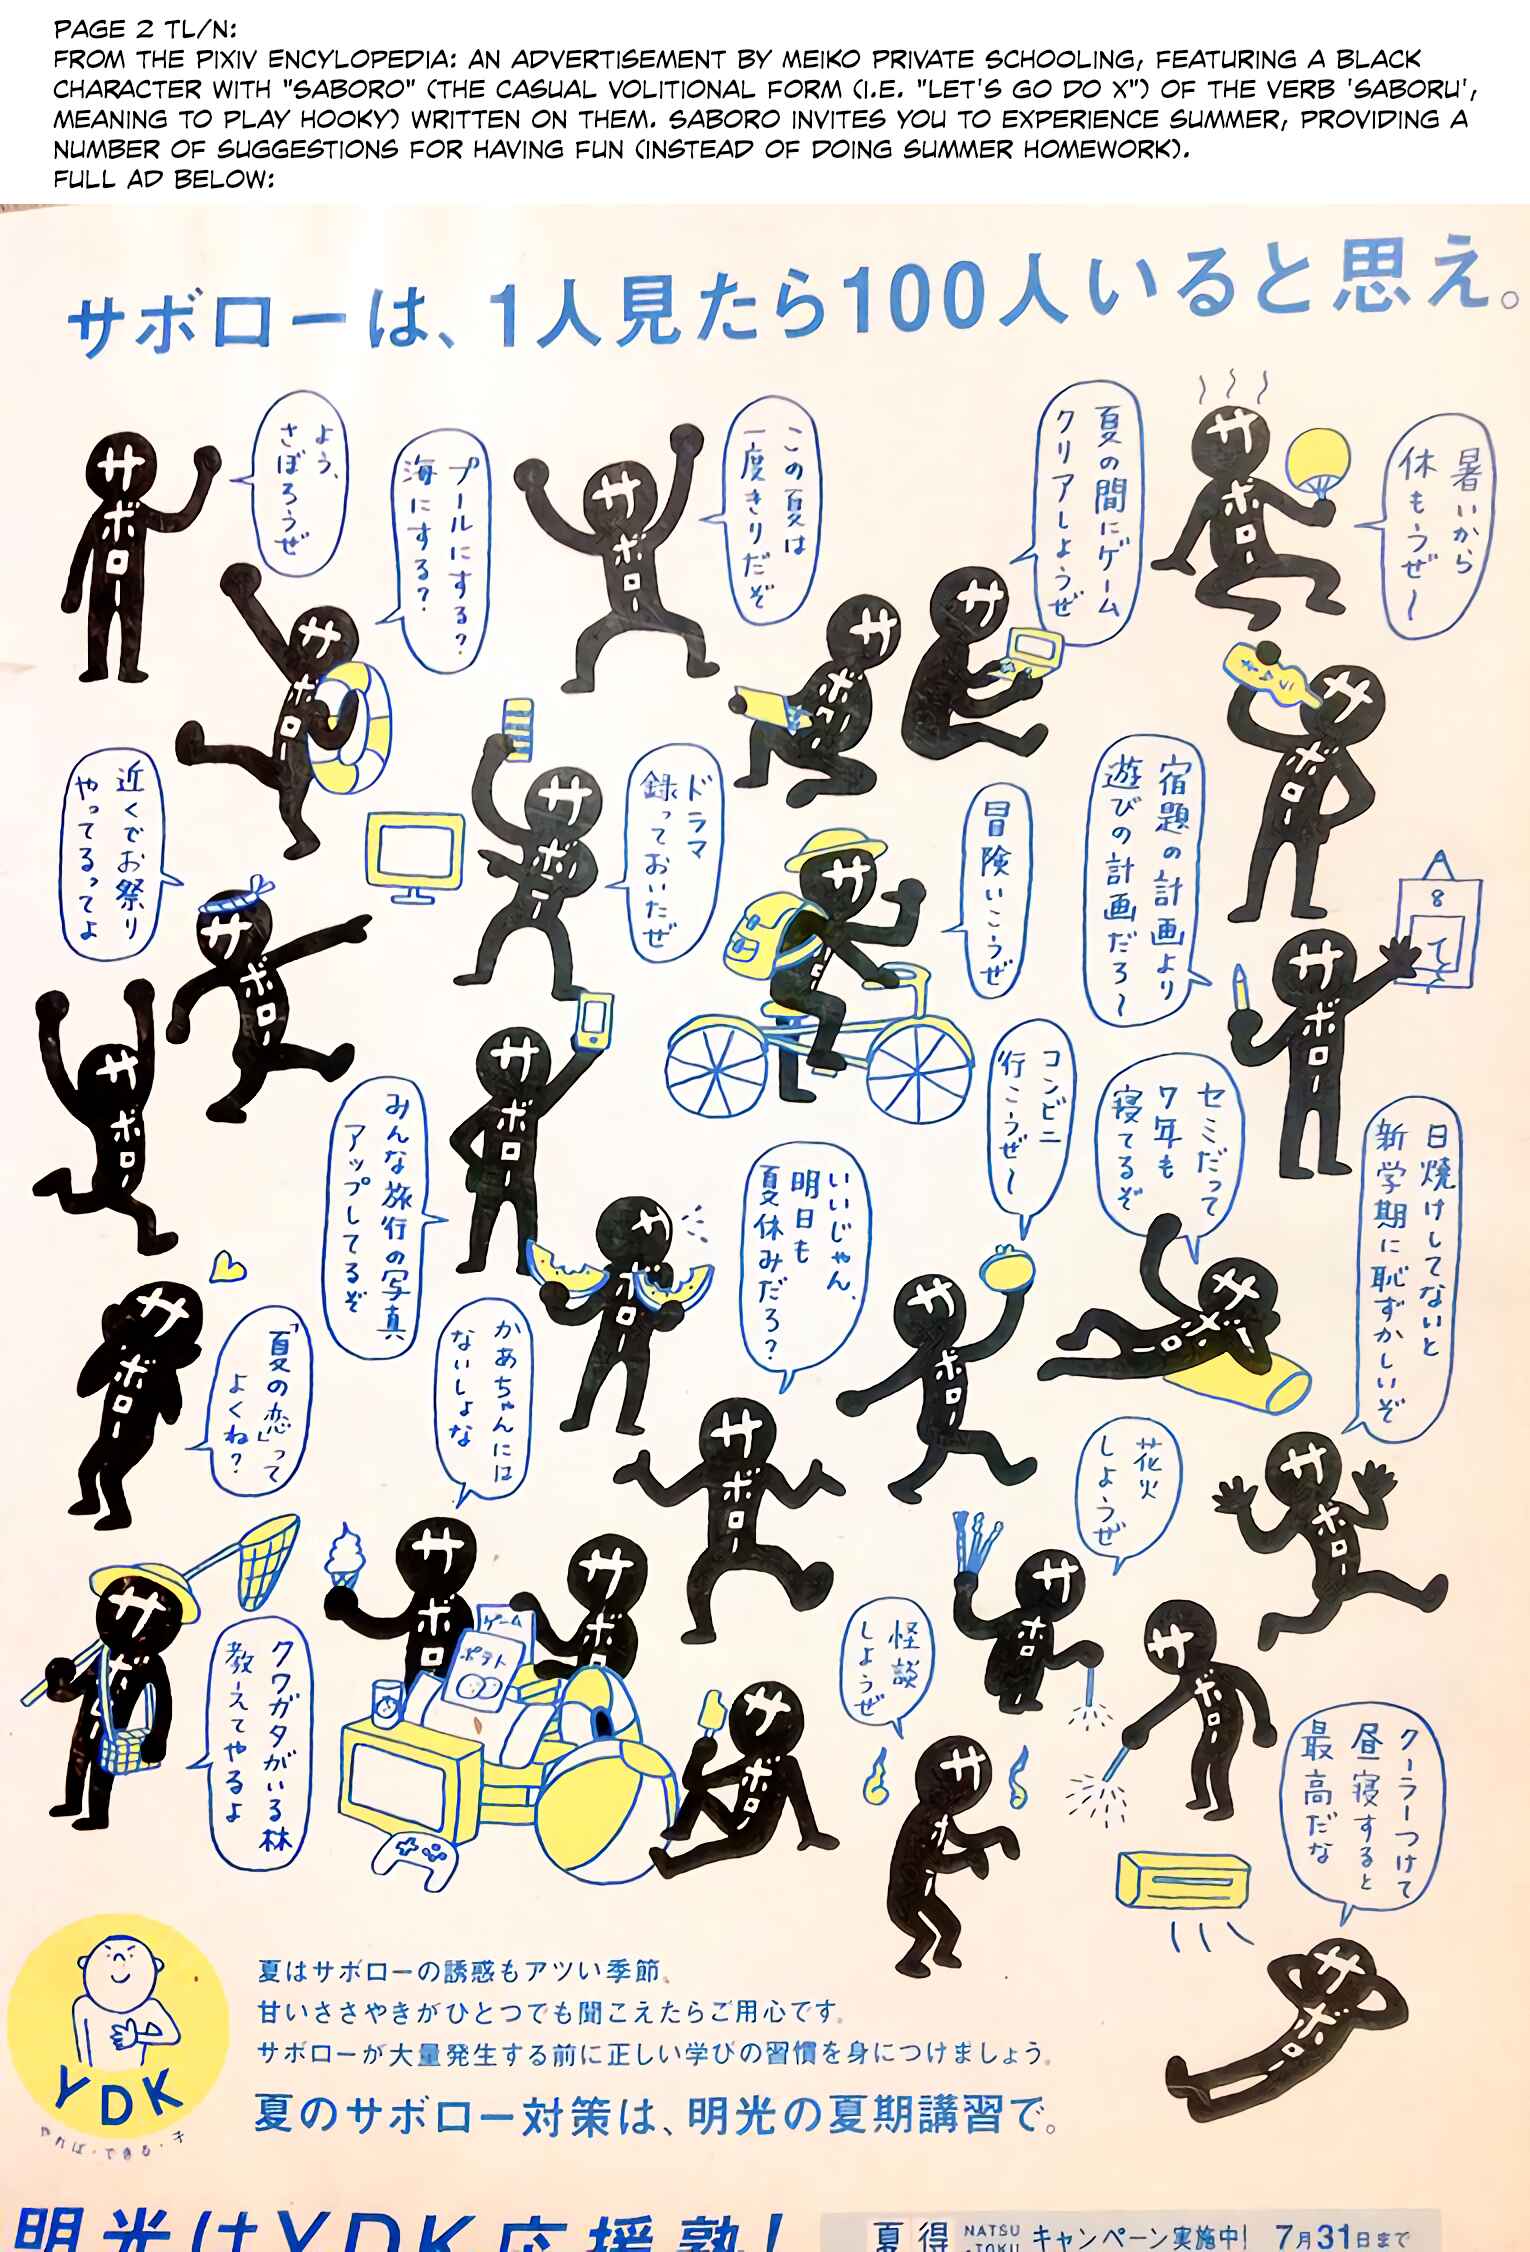 PAGE 2 TL/N:
FROM THE PIXIV ENCYLOPEDIA: AN ADVERTISEMENT BY MEIKO PRIVATE SCHOOLING, FEATURING A BLACK
CHARACTER WITH "SABORO" (THE CASUAL VOLITIONAL FORM (I.E. "LET'S GO DO X") OF THE VERB 'SABORU',
MEANING TO PLAY HOOKY) WRITTEN ON THEM. SABORO INVITES YOU TO EXPERIENCE SUMMER, PROVIDING A
NUMBER OF SUGGESTIONS FOR HAVING FUN (INSTEAD OF DOING SUMMER HOMEWORK).
FULL AD BELOW:
サボローは、1人見たら100人いると思え。
サボロー
よう、
さぼろうぜ
サボロー
プールにする?
海にする?
サボロー
この夏は
一度きりだぞ
サボロー
サボロー
夏の間にゲーム
クリアしようぜ
サボロー
暑いから
休もうぜ〜
サボロー
近くでお祭り
やってるってよ
サボロー
サボロー
ドラマ
録っておいたぜ
サボロー
冒険いこうぜ
サボロー
宿題の計画より
遊びの計画だろ〜
8
サボロー
サボロー
みんな旅行の写真
アップしてるぞ
サボロー
サボロー
いいじゃん、
明日も
夏休みだろ?
サボロー
コンビニ
行こうぜ〜
サボロー
セミだって
7年も
寝てるぞ
サボロー
日焼けしてないと
新学期に恥ずかしいぞ
サボロー
「夏の恋」って
よくね?
サボロー
かあちゃんには
ないしょな
サボロ
サボ
ゲーム
ポテト
サボロー
花火
しようぜ
サボロ
サボロー
クワガタがいる林
教えてやるよ
サボロー
怪談
しようぜ
サボロー
クーラーつけて
昼寝すると
最高だな
サボロー
YDK
やれば・できる・子
夏はサボローの誘惑もアツい季節。
甘いささやきがひとつでも聞こえたらご用心です。
サボローが大量発生する前に正しい学びの習慣を身につけましょう。
夏のサボロー対策は、明光の夏期講習で。
明光はYDK応援塾!
夏得 NATSU
-TOKU キャンペーン実施中! 7月31日まで